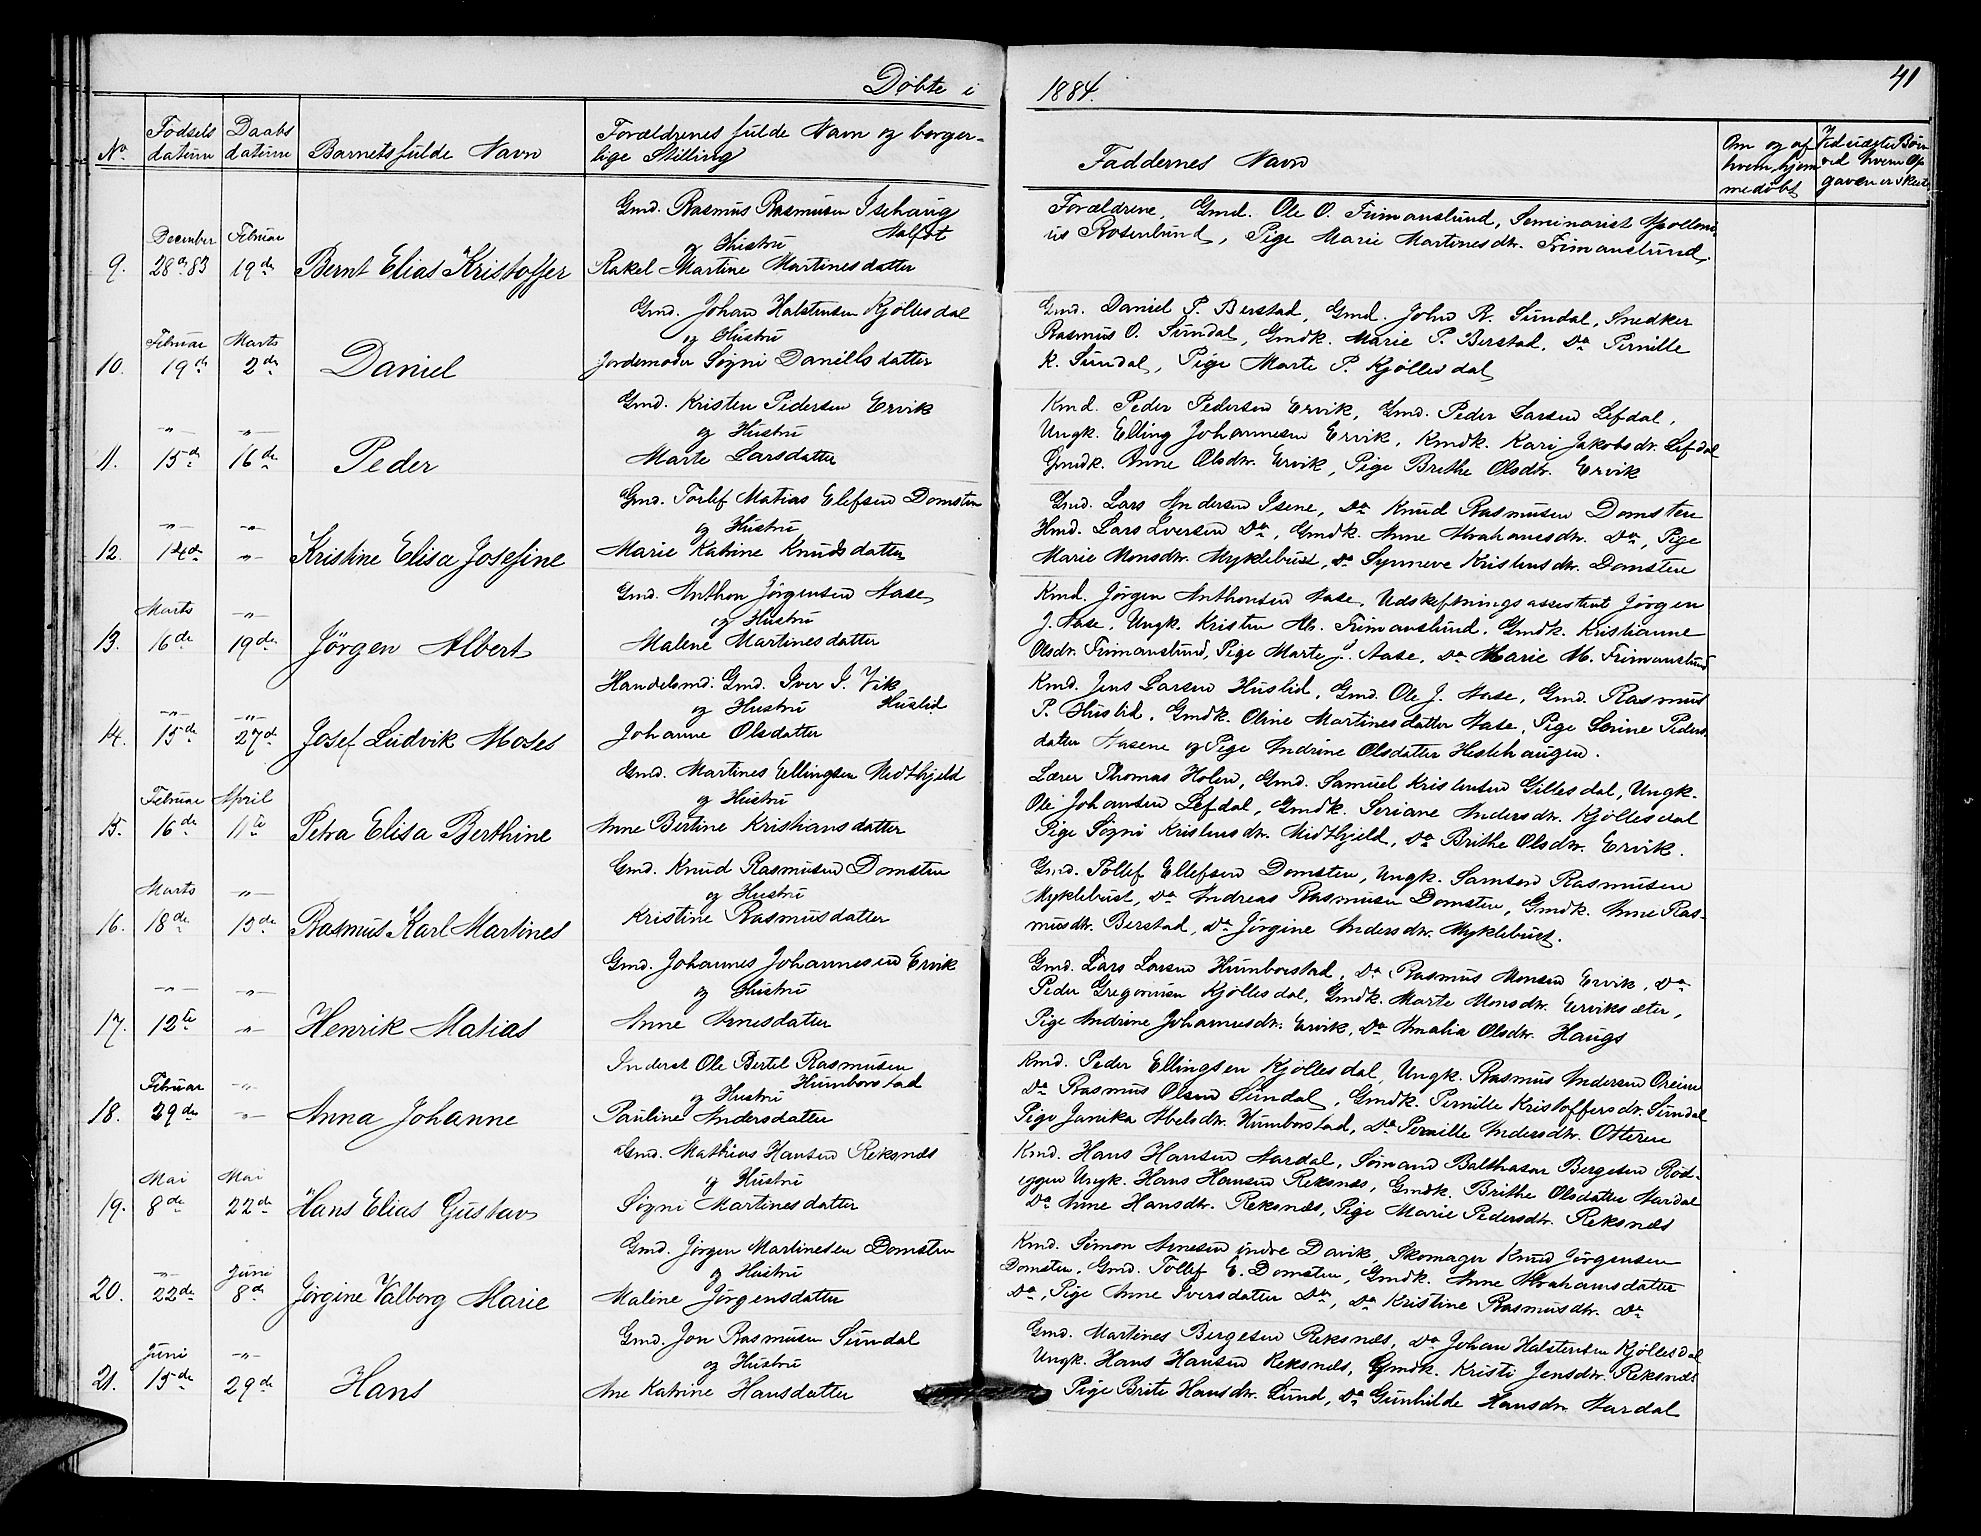 Døbte i 1884.
41
No.
Fødsels datum
Daabs datum
Barnets fulde Navn
Forældrenes fulde Navn og borger-
lige Stilling
Faddernes Navn
Om og af
hvem hjem-
medøbt
9.
December
28de 83
Februar
19de
Bernt Elias Kristoffer
Gmd. Rasmus Rasmusen Isehaug
og Hustru
Rakel Martine Martinesdatter
Forældrene, Gmd. Ole O. Frimanslund, Seminarist Apolloni-
us Rosenlund, Pige Marie Martinesdtr. Frimanslund.
10.
Februar
19de
Marts
2de
Daniel
Gmd. Johan Halstensen Kjöllesdal
og Hustru
Jordemoder Søgni Daniellsdatter
Gmd. Daniel P. Berstad, Gmd. John R. Sundal, Snedker
Rasmus O. Sundal, Gmdk. Marie P. Berstad, Do Pernille
R. Sundal, Pige Marte P. Kjöllesdal
11.
-"-
15de
-"-
16de
Peder
Gmd. Kristen Pedersen Ervik
og Hustru
Marte Larsdatter
Kmd. Peder Pedersen Ervik, Gmd. Peder Larsen Lefdal,
Ungk. Elling Johannesen Ervik, Kmdk. Kari Jakobsdr. Lefdal
Gmdk. Anne Olsdtr. Ervik, Pige Brithe Olsdtr. Ervik
12.
-"-
14de
-"-
-"-
Kristine Elisa Josefine
Gmd. Torlef Matias Elefsen Domsten
og Hustru
Marie Katrine Knudsdatter
Gmd. Lars Andersen Isene, Do Knud Rasmusen Domsten
Hmd. Lars Iversen Do, Gmdk. Anne Abrahamsdtr. Do, Pige
Marie Monsdtr. Myklebust, Do Synneve Kristensdtr. Domsten
13.
Marts
16de
-"-
19de
Jörgen Albert
Gmd. Anthon Jörgensen Aase
og Hustru
Malene Martinesdatter
Kmd. Jörgen Anthonsen Aase, Udskiftningsassistent Jörgen
J. Aase, Ungk. Kristen M. Frimanslund, Gmdk. Kristianne
Olsdtr. Frimanslund, Pige Marte J. Aase, Do Marie M. Frimanslund
14.
-"-
15de
-"-
27de
Josef Ludvik Moses
Handelsmd. Gmd. Iver I. Vik
og Hustru Huslid
Johanne Olsdatter
Kmd. Jens Larsen Huslid, Gmd. Ole J. Aase, Gmd. Rasmus
P. Huslid, Gmdk. Oline Martinesdatter Aase, Pige Serine Peders-
datter Aasene og Pige Andrine Olsdatter Hestehaugen.
15.
Februar
16de
April
11te
Petra Elisa Berthine
Gmd. Martines Ellingsen Midthjeld
og Hustru
Anne Bertine Kristiansdatter
Lærer Thomas Holen, Gmd. Samuel Kristensen Gillesdal, Ungk.
Ole Johansen Lefdal, Gmdk. Seriane Andersdtr. Kjöllesdal
Pige Søgni Kristensdtr. Midthjeld, Do Brithe Olsdtr. Ervik.
16.
Marts
18de
-"-
13de
Rasmus Karl Martines
Gmd. Knud Rasmusen Domsten
og Hustru
Kristine Rasmusdatter
Gmd. Tollef Ellefsen Domsten, Ungk. Samson Rasmusen
Myklebust, Do Andreas Rasmusen Domsten, Gmdk. Anne Ras-
musdtr. Berstad, Do Jörgine Andersdtr. Myklebust.
17.
-"-
12te
-"-
-"-
Henrik Matias
Gmd. Johannes Johannesen Ervik
og Hustru
Anne Arnesdatter
Gmd. Lars Larsen Humborstad, Do Rasmus Monsen Ervik, Do
Peder Gregoriusen Kjöllesdal, Gmdk. Marte Monsdtr. Erviksæter,
Pige Andrine Johannesdtr. Ervik, Do Amalia Olsdtr. Haugs
18.
Februar
29de
-"-
-"-
Anna Johanne
Inderst Ole Bertel Rasmusen
og Hustru Humborstad
Pauline Andersdatter
Kmd. Peder Ellingsen Kjöllesdal, Ungk. Rasmus Andersen Oreim
Do Rasmus Olsen Sundal, Gmdk. Pernille Kristoffersdr. Sundal
Pige Janika Abelsdtr. Humborstad, Do Pernille Andersdtr. Otteren
19.
Mai
8de
Mai
22de
Hans Elias Gustav
Gmd. Mathias Hansen Reksnes
og Hustru
Søgni Martinesdatter
Kmd. Hans Hansen Aardal, Sömand Balthasar Bergesen Röd-
eggen Ungk. Hans Hansen Reksnæs, Gmdk. Brithe Olsdatter Aardal
Do Anne Hansdtr. Reksnæs, Pige Marie Pedersdtr. Reksnæs
20.
-"-
22de
Juni
8de
Jörgine Valborg Marie
Gmd. Jörgen Martinesen Domsten
og Hustru
Maline Jörgensdatter
Kmd. Simon Arnesen indre Davik, Skomager Knud Jörgensen
Domsten, Gmd. Tollef E. Domsten, Gmdk. Anne Abrahamsdatter
Do, Pige Anne Iversdatter Do, Do Kristine Rasmusdtr. Do
21.
Juni
15de
-"-
29de
Hans
Gmd. Jon Rasmusen Sundal
og Hustru
Ane Katrine Hansdatter
Gmd. Martines Bergesen Reksnæs, Do Johan Halstensen Kjöllesdal
Ungk. Hans Hansen Reksnæs, Gmdk. Kristi Jensdtr. Reksnæs
Pige Brite Hansdtr. Lund, Do Gunhilde Hansdtr. Aardal